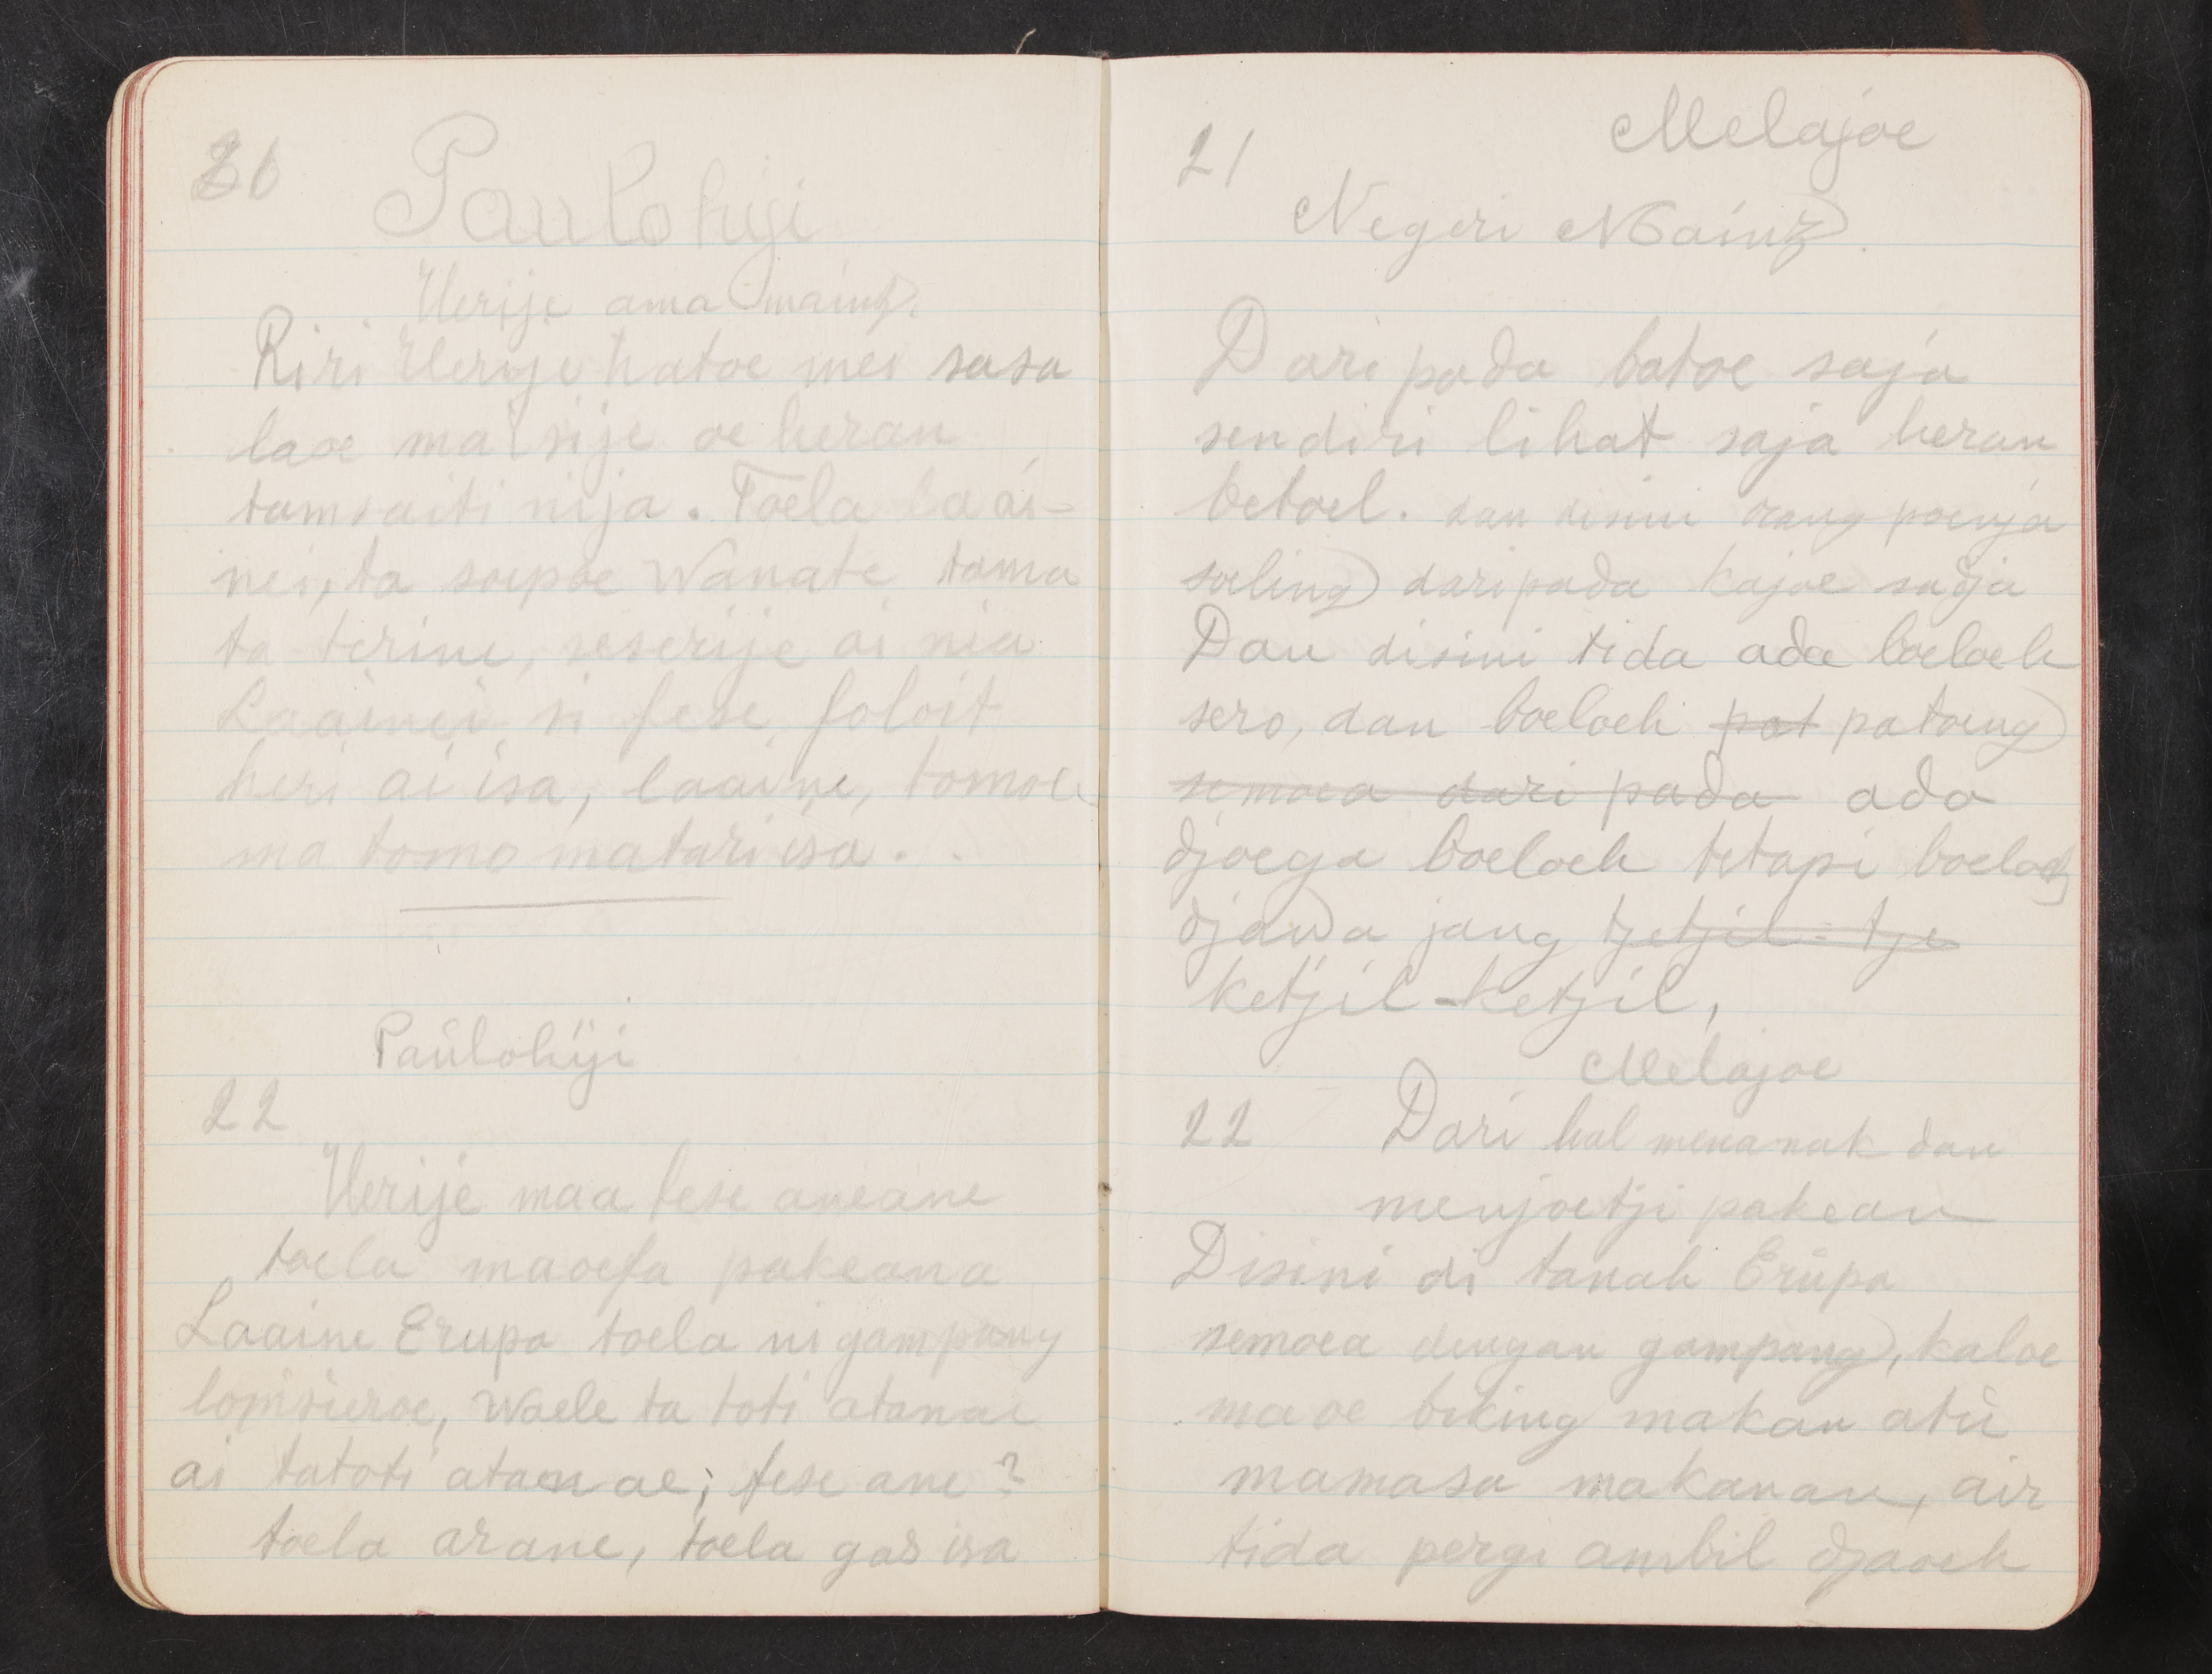 26
Paulohiji
Herije ama mainz.
Riri Herije hatoe mei sasa
laoe mai sije oe heran
tamsaiti nija. Toela laai-
nei, ta soepoe Wanate toma
ta terine, seserije ai nia
Laainei si fese foloit
heri ai isa, laaine, tomoe
ma tomo matari isa.
Paülohiji
22
Herije maa fese aneane
toela maoefa pakeana
Laaine Erupa toela ni gampang
lomsieroe, Waele ta toti atanae
ai tatoti atanae; fese ane?
toela arane, toela gas isa
Melajoe
21
Negeri Mainz
Dari pada batoe saja
sendiri lihat saja heran
betoel. dan disini orang poenja
soeling daripada kajoe sadja
Dan disini tida ada boeloeh
sero, dan boeloeh pat patoeng
semoea dari pada ada
djoega boeloeh tetapi boeloeh
djawa jang tjetjil-tje
ketjil-ketjil,
Melajoe
22 Dari hal menanak dan
menjoetji pakean
Disini di tanah Erüpa
semoea dengan gampang, kaloe
maoe biking makan atü
mamasa makanan, air
tida pergi ambil djaoeh